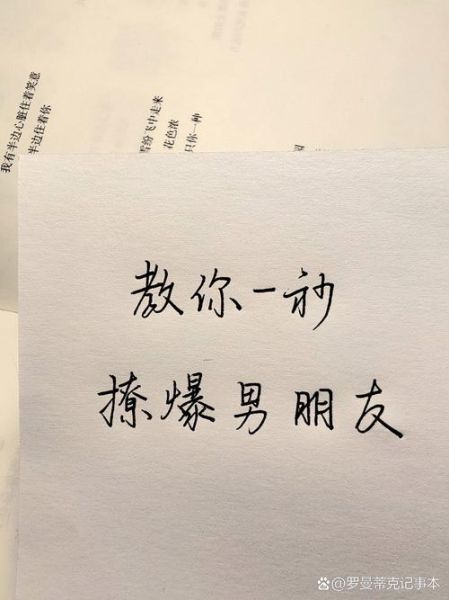 我有半边心脏住着笑意
半边住着你
雪纷飞中走来
花色浓
只你一种
教你一秒
撩爆男朋友
@罗曼蒂克记事本